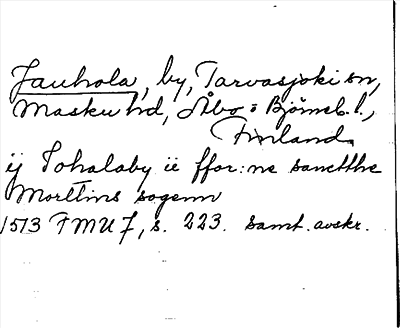 Jauhola, by, Tarvasjoki sn,
Masku hd, Åbo o Björneb. l.,
Finland.
ij Johalaby ii ffor:ne sanctthe
Morttins sogenn
1513 FMU 7, s. 223. samt. avskr.